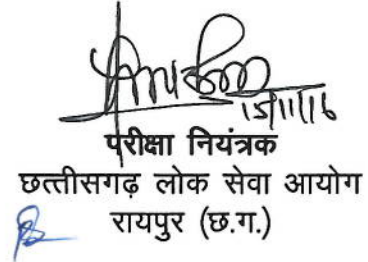 15/11/16
परीक्षा नियंत्रक
छत्तीसगढ़ लोक सेवा आयोग
रायपुर (छ.ग.)